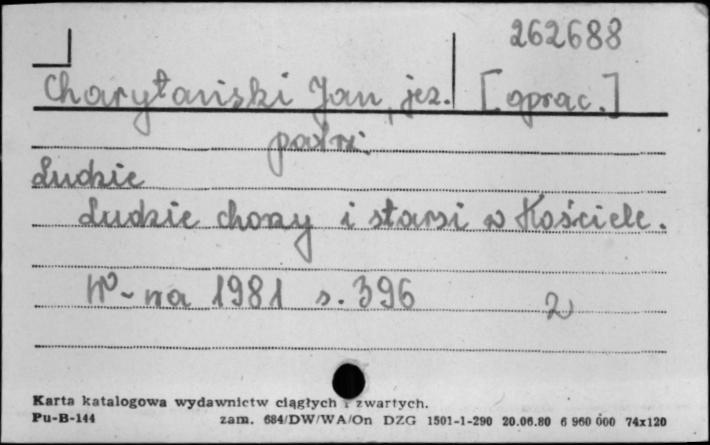 262688
Charytański Jan, jez. [oprac.]
patrz:
Ludzie
Ludzie chorzy i starsi w Kościele.
W-wa 1981 s. 396 2
Karta katalogowa wydawnictw ciągłych i zwartych.
Pu-B-144 zam. 684/DW/WA/On DZG 1501-1-290 20.06.80 6 960 000 74x120